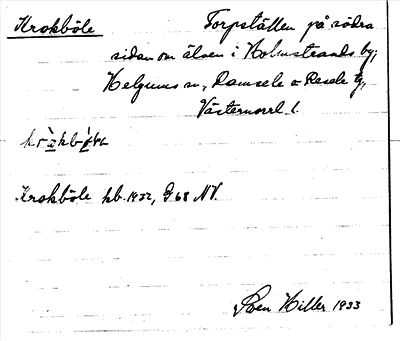 Krokböle Torpställen på södra
sidan om älven i Holmstrands by,
Helgums sn, Ramsele o Resele tg,
Västernorrl. l.
Krokböle kb. 1932, G 68 NV.
Sven Hiller 1933